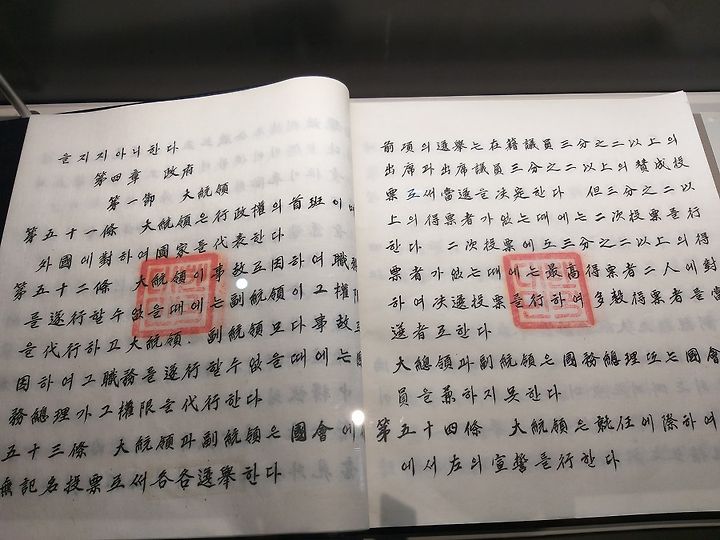 을지지아니한다
第四章 政府
第一節 大統領
第五十一條 大統領은行政權의首班이며
外國에對하여國家를代表한다
第五十二條 大統領이事故로因하여職務
를遂行할수없을때에는副統領이그權限
을代行하고大統領, 副統領모다事故로
因하여그職務를遂行할수없을때에는國
務總理가그權限을代行한다
五十三條 大統領과副統領은國會에
無記名投票로써各各選擧한다
前項의選擧는在籍議員三分之二以上의
出席과出席議員三分之二以上의贊成投
票로써當選을決定한다 但三分之二以
上의得票者가없는때에는二次投票를行
한다 二次投票에도三分之二以上의得
票者가없는때에는最高得票者二人에對
하여決選投票를行하여多數得票者를當
選者로한다
大統領과副統領은國務總理또는國會
員을兼하지못한다
第五十四條 大統領은就任에際하여
에서左의宣誓를行한다